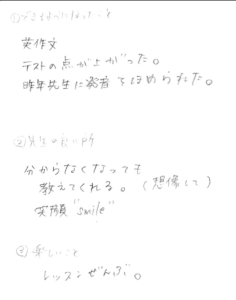 ①できるようになったこと
英作文
テストの点が上がった。
昨年先生に発音をほめられた。
②先生の良い所
分からなくなっても
教えてくれる。(想像して)
笑顔"smile"
③楽しいこと
レッスンぜんぶ。